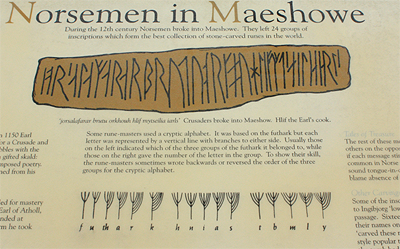 Norsemen in Maeshowe
During the 12th century Norsemen broke into Maeshowe. They left 24 groups of
inscriptions which form the best collection of stone-carved runes in the world.
'jorsalafarar brutu orkhouh hlif iarls' Crusaders broke into Maeshowe. Hlif the Earl's cook.
Some rune-masters used a cryptic alphabet. It was based on the futhark but each
letter was represented by a vertical line with branches to either side. Usually those
on the left indicated which of the three groups of the futhark it belonged to, while
those on the right gave the number of the letter in the group. To show their skill,
the rune-masters sometimes wrote backwards or reversed the order of the three
groups for the cryptic alphabet.
f u th a r k h n i a s t b m l y
n 1150 Earl
or a Crusade and
bbles with the
gifted skald:
mposed poetry.
ned from his
ed for mastery
Earl of Atholl,
nded at
rm he took
The rest of these m
others on the opposi
if each message
common in Norse
sound tongue-in-c
blame absence of
Some of the ins
to Ingibjorg 'lov
passage. Sixteen
their names on
'carved these r
style popular t